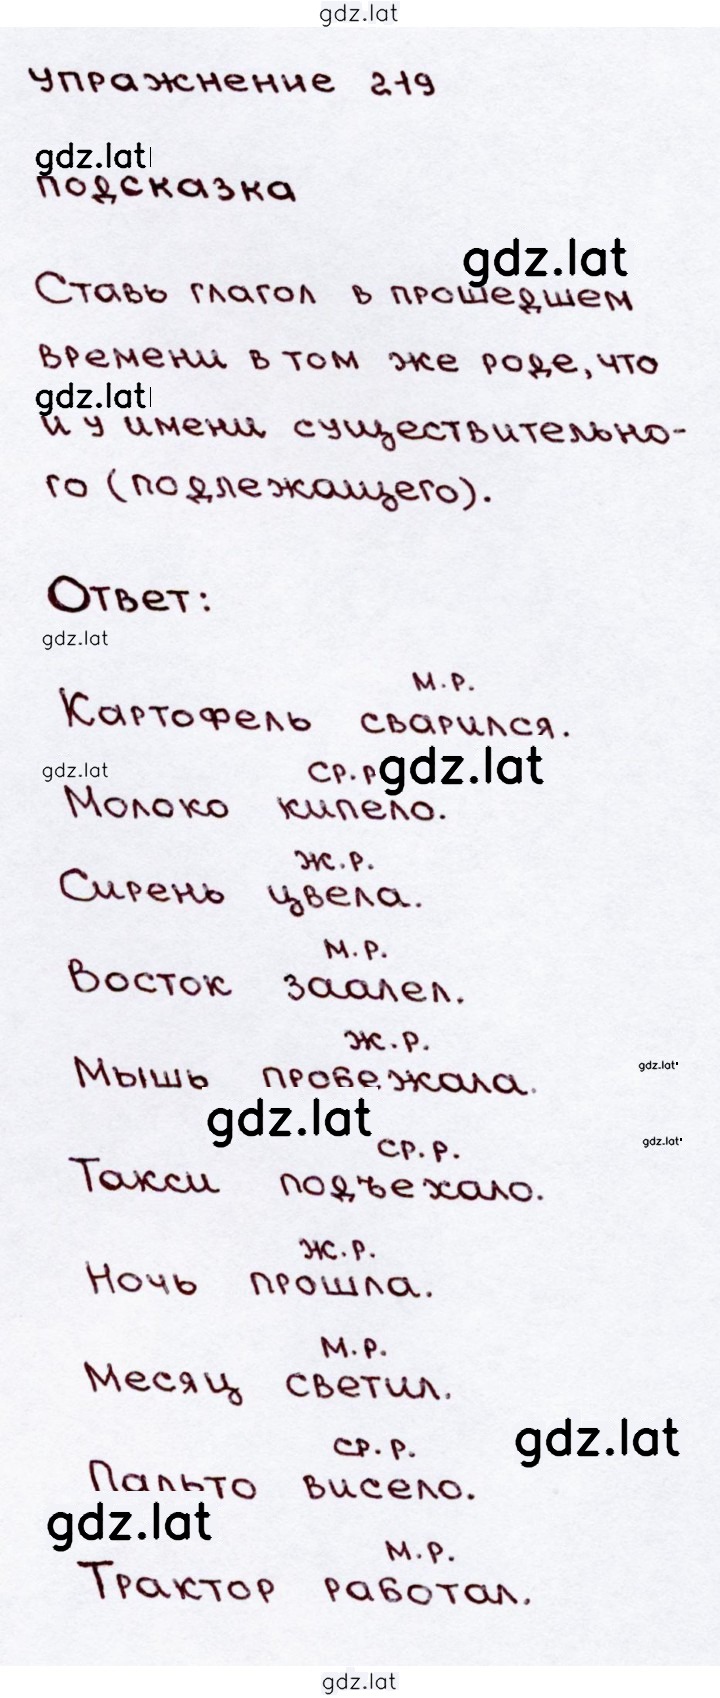 gdz.lat
Упражнение 219
gdz.lat
подсказка
gdz.lat
Ставь глагол в прошедшем
времени в том же роде, что
gdz.lat
и у имени существительно-
го (подлежащего).
Ответ:
gdz.lat
м.р.
Картофель сварился.
gdz.lat ср.р gdz.lat
Молоко кипело.
ж.р.
Сирень цвела.
м.р.
Восток заалел.
ж.р.
gdz.lat
Мышь пробежала.
gdz.lat
gdz.lat
ср.р.
Такси подъехало.
ж.р.
Ночь прошла.
м.р.
Месяц светил.
gdz.lat
ср.р.
Пальто висело.
gdz.lat
м.р.
Трактор работал.
gdz.lat